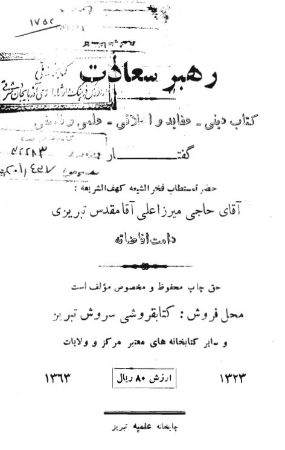 ۱۷۵۲
رهبر سعادت
کتاب دینی - عقاید و اخلاقی - علمی و
گفتار
۴۲۲۸۳
حضرت مستطاب فخر الشیعه کهف الشریعه :
آقای حاجی میرزا علی آقا مقدس تبریزی
دامت افاضاته
حق چاپ محفوظ و مخصوص مؤلف است
محل فروش : کتابفروشی سروش تبریز
و سایر کتابخانه های معتبر مرکز و ولایات
۱۳۲۳ ارزش ۸۰ ریال ۱۳۶۳
چاپخانه علمیه تبریز